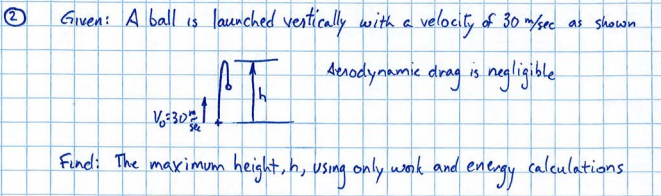 ② Given: A ball is launched vertically with a velocity of 30 m/sec as shown
Aerodynamic drag is negligible
h
V₀=30 m/sec
Find: The maximum height, h, using only work and energy calculations